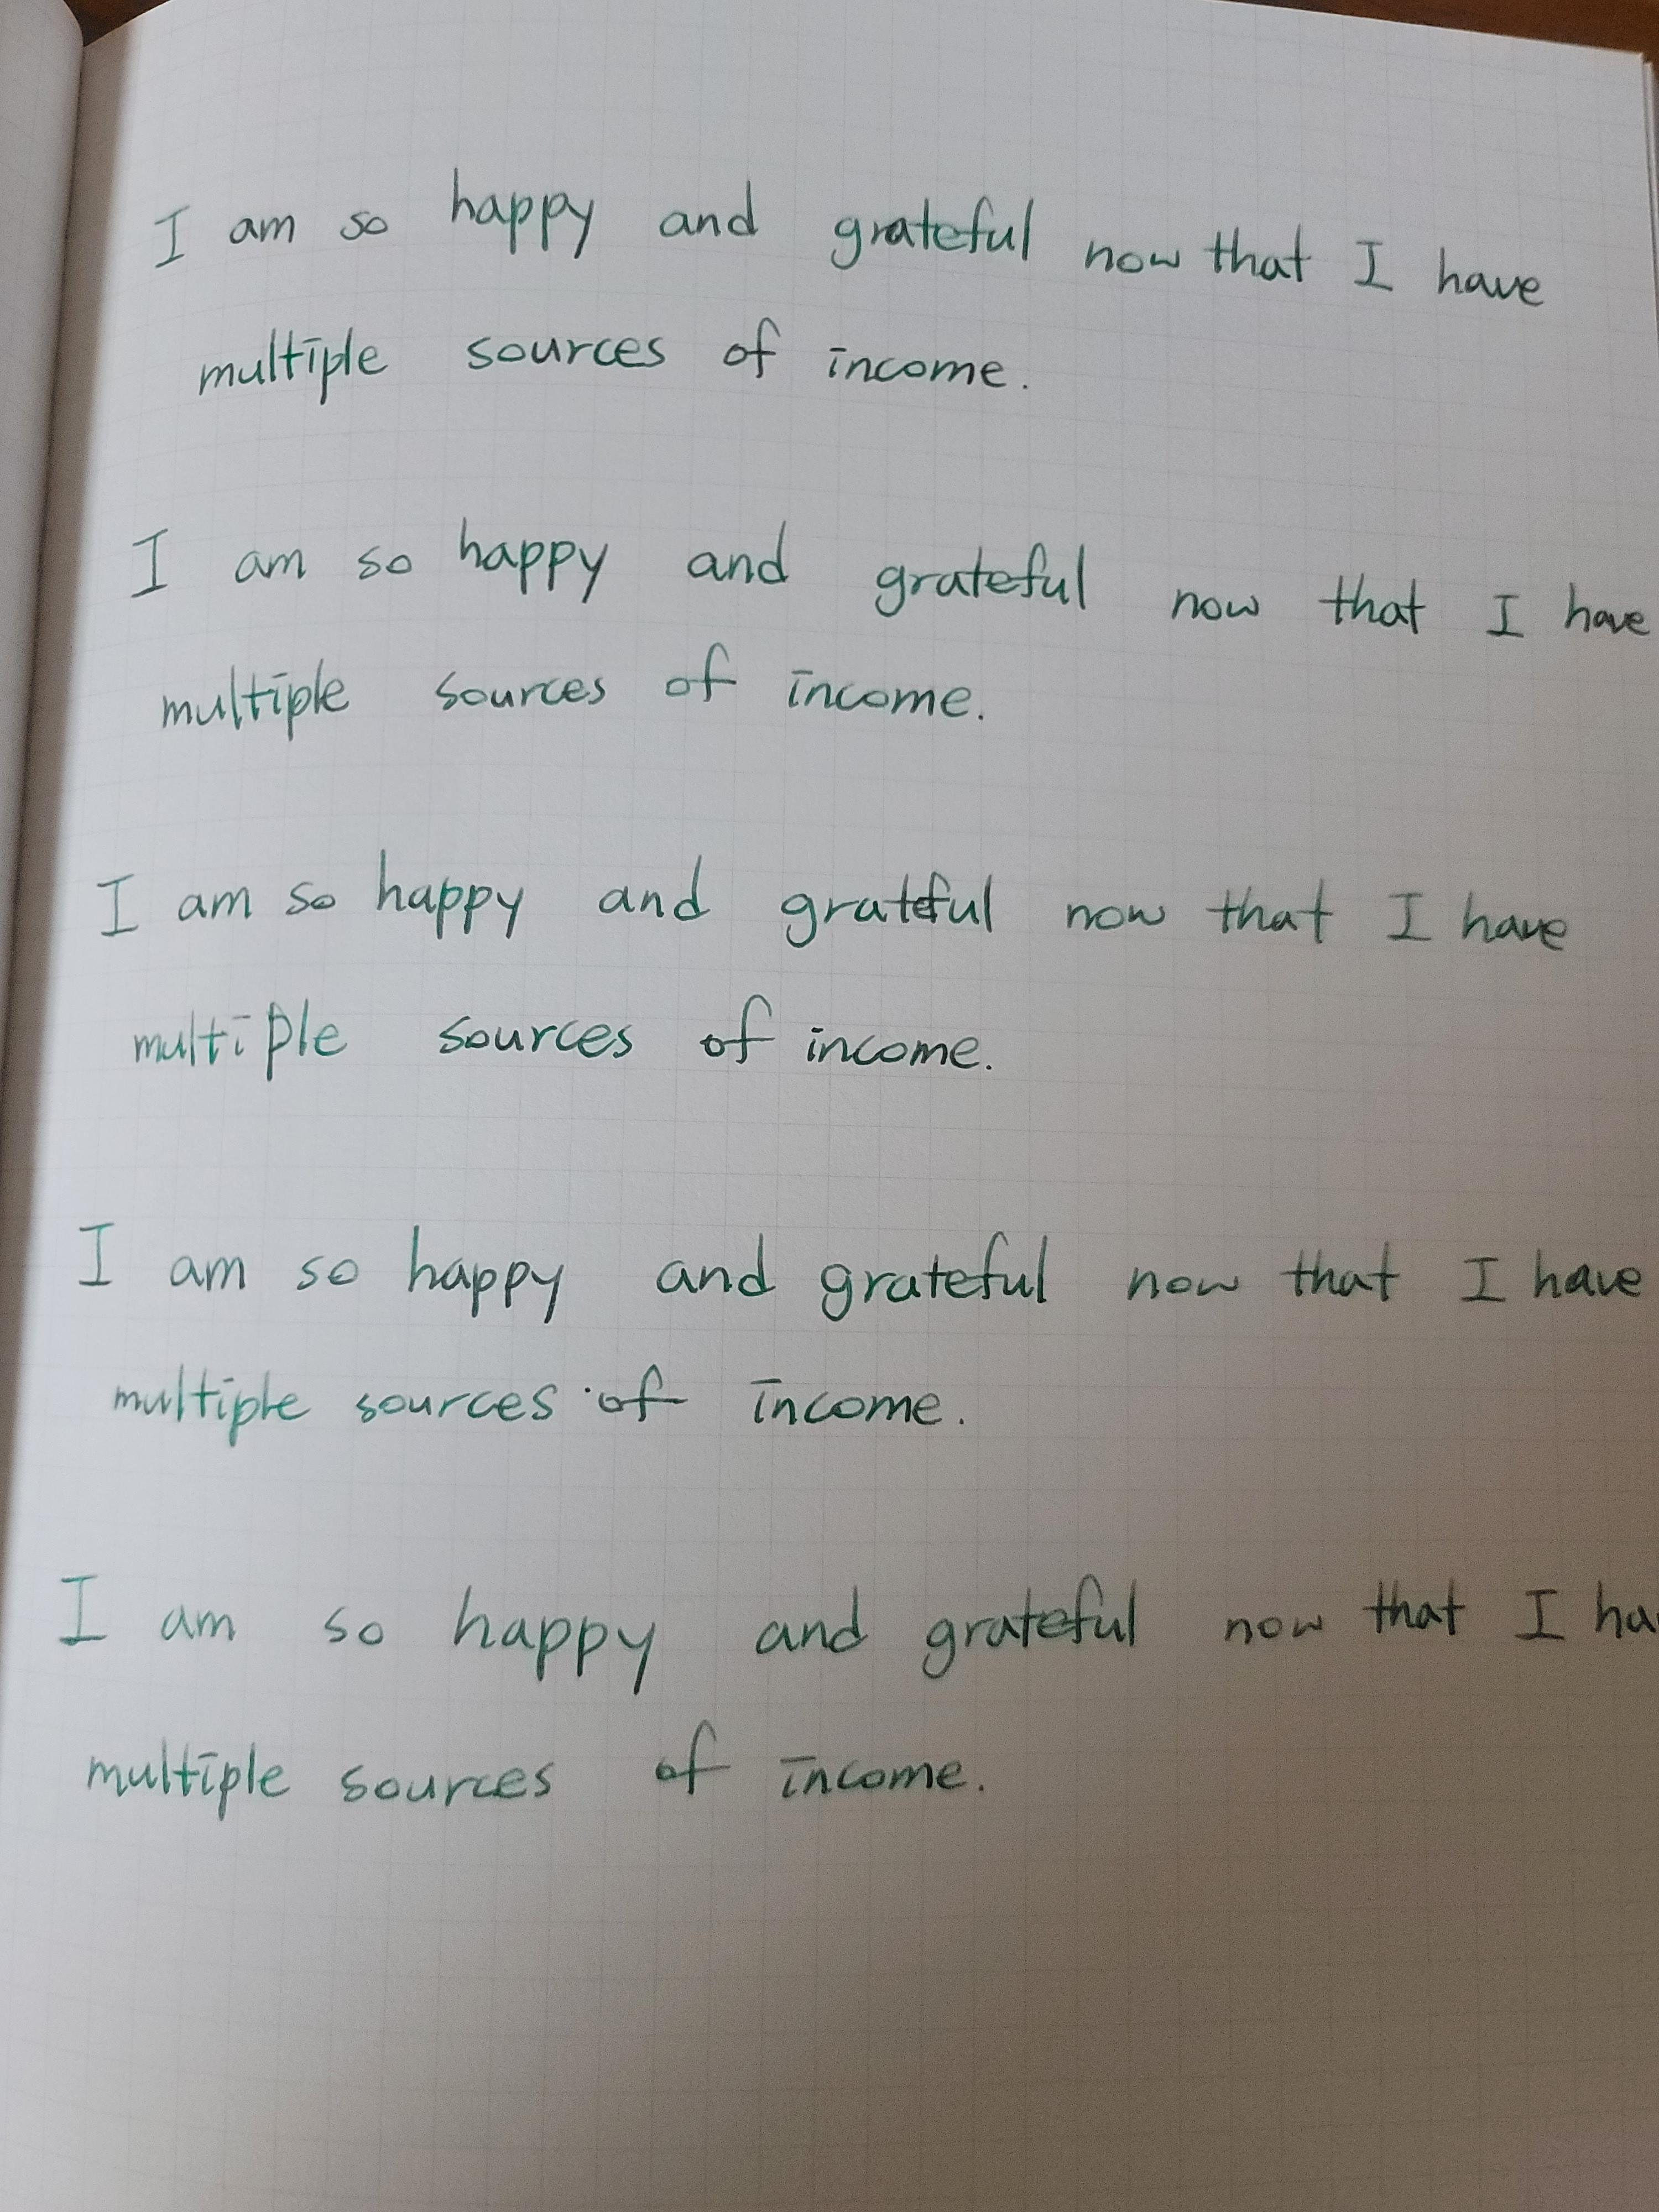 I am so happy and grateful now that I have
multiple sources of income.
I am so happy and grateful now that I have
multiple sources of income.
I am so happy and grateful now that I have
multiple sources of income.
I am so happy and grateful now that I have
multiple sources of income.
I am so happy and grateful now that I ha
multiple sources of income.